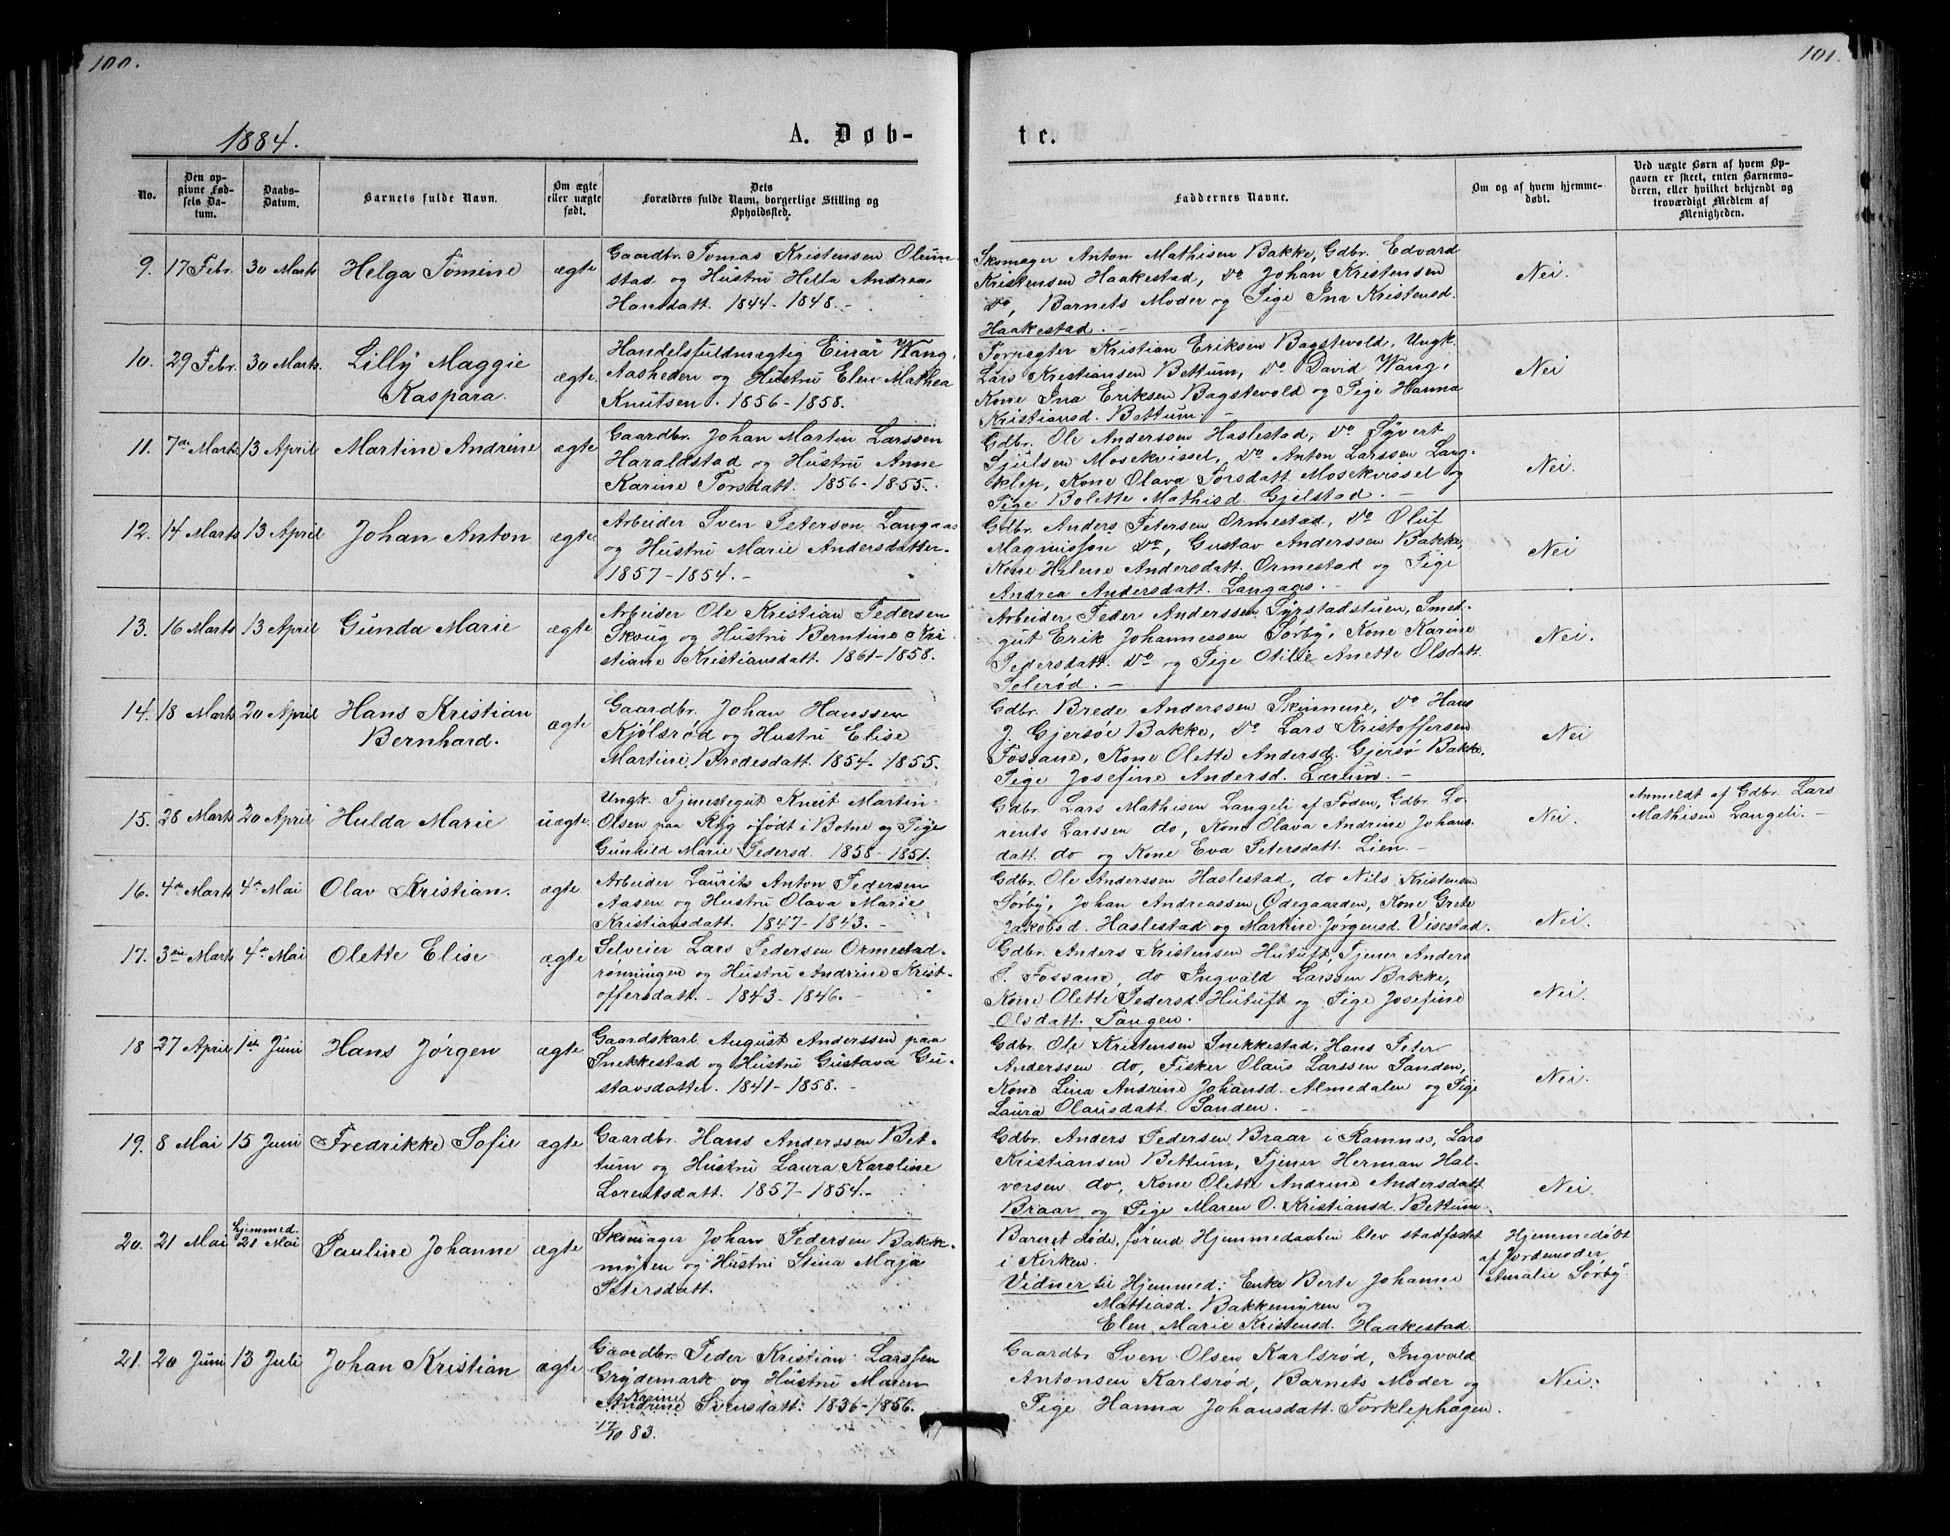 100.
1884.
A. Døb-
No.
Den opgivne Fødsels Datum.
Daabs-Datum.
Barnets fulde Navn.
Om ægte eller uægte født.
Dets Forældres fulde Navn, borgerlige Stilling og Opholdssted.
9. 17 Febr. 30 Marts Helga Tomine ægte
Gaardbr. Tomas Kristensen Olum-
stad og Hustru Hella Andrea
Hansdatt. 1844-1848.-
10. 29 Febr. 30 Marts. Lilly Maggie
Kaspara. ægte.
Handelsfuldmægtig Einar Wang,
Aasheden og Hustru Elen Mathea
Knutsen. 1856-1858.
11. 7de Marts 13 April Martine Andrine ægte
Gaardbr. Johan Martin Larssen
Haraldstad og Hustru Anne
Karine Torsdatt. 1856-1855.
12. 14 Marts 13 April Johan Anton ægte
Arbeider Sven Peterson Langaas
og Hustru Marie Andersdatter.
1857-1854.-
13. 16 Marts 13 April Gunda Marie ægte
Arbeider Ole Kristian Pedersen
Skoug og Hustru Berntine Kri-
stiane Kristiansdatt. 1861-1858.
14. 18 Marts 20 April Hans Kristian
Bernhard. ægte
Gaardbr. Johan Hanssen
Kjølsrød og Hustru Elise
Martine Bredesdatt. 1854-1855.
15. 28 Marts 20 April Hulda Marie uægte
Ungk. Tjenestegut Knut Martin
Olsen paa Røg født i Botne og Pige
Gunhild Marie Pedersd. 1858-1851.
16. 4de Marts 4de Mai Olav Kristian. ægte
Arbeider Laurits Anton Pedersen
Aasen og Hustru Olava Marie
Kristiansdatt. 1847-1843.-
17. 3die Marts 4de Mai Olette Elise ægte
Selveier Lars Pedersen Ormestad-
rønningen og Hustru Andrine Krist-
offersdatt. - 1843-1846.-
18 27 April 1ste Juni Hans Jørgen ægte
Gaardskarl August Anderssen paa
Snekkestad og Hustru Gustava Gu-
stavsdatter. 1841-1858.-
19. 8 Mai 15 Juni Fredrikke Sofie ægte
Gaardbr. Hans Anderssen Bet-
tum og Hustru Laura Karoline
Lorentsdatt. 1857-1854.-
20. 21 Mai hjemmed. 21 Mai Pauline Johanne ægte
Skomager Johan Pedersen Bakke-
myren og Hustru Stina Maja
Petersdatt.
21. 20 Juni 13 Juli Johan Kristian ægte
Gaardbr. Peder Kristian Larssen
Grydemark og Hustru Maren
Karine
Andrine Svensdatt. 1836-1856.
17/10 83.
101.
te.
Faddernes Navne.
Om og af hvem hjemme-døbt.
Ved uægte Børn af hvem Opgaven er skeet, enten Barnemoderen, eller hvilket bekjendt og troværdigt Medlem af Menigheden.
Skomager Anton Mathisen Bakke, Gdbr. Edvard
Kristensen Haakestad, do Johan Kristensen
do, Barnets Moder og Pige Ina Kristensd.
Haakestad.-
Nei.
Forpagter Kristian Eriksen Bagstevold, Ungk.
Lars Kristiansen Bettum, do David Wang,
Kone Ina Eriksen Bagstevold og Pige Hanna
Kristiansd. Bettum.-
Nei
Gdbr. Ole Anderssen Haslestad, do Syvert
Sjulsen Mosekvissel, do Anton Larssen Lang-
klep, Kone Olava Torsdatt. Mosekvissel og
Pige Bolette Mathisd. Gjelstad.-
Nei.
Gdbr. Anders Petersen Ormestad, do Oluf
Magnusson do, Gustav Anderssen Bakke,
Kone Helene Andersdatt. Ormestad og Pige
Andrea Andersdatt. Langaas.-
Nei
Arbeider Peder Anderssen Syrstadstuen, Smed-
gut Erik Johannessen Sørby, Kone Karine
Pedersdatt. do og Pige Otilie Anette Olsdatt.
Selerød.-
Nei.
Gdbr. Brede Anderssen Skinmene, do Hans
J. Gjersøe Bakke, do Lars Kristoffersen
Fossane, Kone Olette Andersd. Gjersø Bakke,
Pige Josefine Andersd. Lærum.-
Nei
Gdbr. Lars Mathisen Langeli af Foden, Gdbr. Lo-
rents Larssen do, Kone Olava Andrine Johans-
datt. do og Kone Eva Petersdatt. Lien.-
Nei.
Anmeldt af Gdbr. Lars
Mathisen Langeli.-
Gdbr. Ole Anderssen Haslestad, do Nils Kristensen
Sørby, Johan Andreassen Ødegaarden, Kone Grete
Jakobsd. Haslestad og Martine Jørgensd. Visestad.
Nei.
Gdbr. Anders Kristensen Hutuft, Tjener Anders
S. Fossane, do Ingvald Larssen Bakke,
Kone Olette Pedersd. Hutuft og Pige Josefine
Olsdatt. Tangen.
Nei.
Gdbr. Ole Kristensen Snekkestad, Hans Peter
Anderssen do, Fisker Olaus Larssen Sanden,
Kone Lina Andrine Johansd. Almedalen og Pige
Laura Olausdatt. Sanden.
Nei.
Gdbr. Anders Pedersen Braar i Ramnes, Lars
Kristiansen Bettum, Tjener Herman Hal-
vorsen do, Kone Olette Andrine Andersdatt.
Braar og Pige Maren O. Kristiansd. Bettum.
Nei.
Barnet døde, førend Hjemmedaaben blev stadfæstet
i Kirken.
Vidner til Hjemmed: Enke Berte Johanne
Mattiasd. Bakkemyren og
Elen Marie Kristensd. Haakestad.
Hjemmedøbt
af Jordemoder
Amalie Sørby.
Gaardbr Sven Olsen Karlsrød, Ingvald
Antonsen Karlsrød, Barnets Moder og
Pige Hanna Johansdatt. Torklephagen.
Nei.